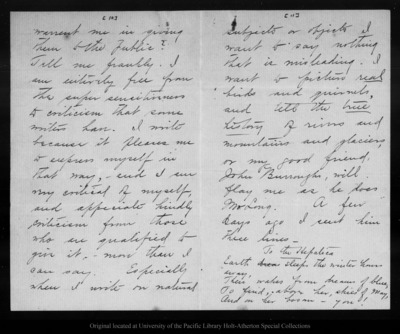 warrant me in giving
them to the Public?
Tell me frankly. I
am entirely free from
the super sensitiveness
to criticism that some
writers have. I write
because it pleases me
to express myself in
that way, and I am
very critical of myself,
and appreciate kindly
criticism from those
who are qualified to
give it, - more than I
can say. Especially
when I write on natural
subjects or objects I
want to say nothing
that is misleading. I
want to picture real
birds and squirrels,
and tell the true
history of rivers and
mountains and glaciers,
or my good friend,
John Burroughs, will
flay me as he does
Mr. Long. A few
days ago I sent him
these lines -
To the Hepatica
Earth sleeps the winter hours
away,
Then wakes from dreams of blue,
To find, above her, skies of May,
And on her bosom - you!
Original located at University of the Pacific Library Holt-Atherton Special Collections